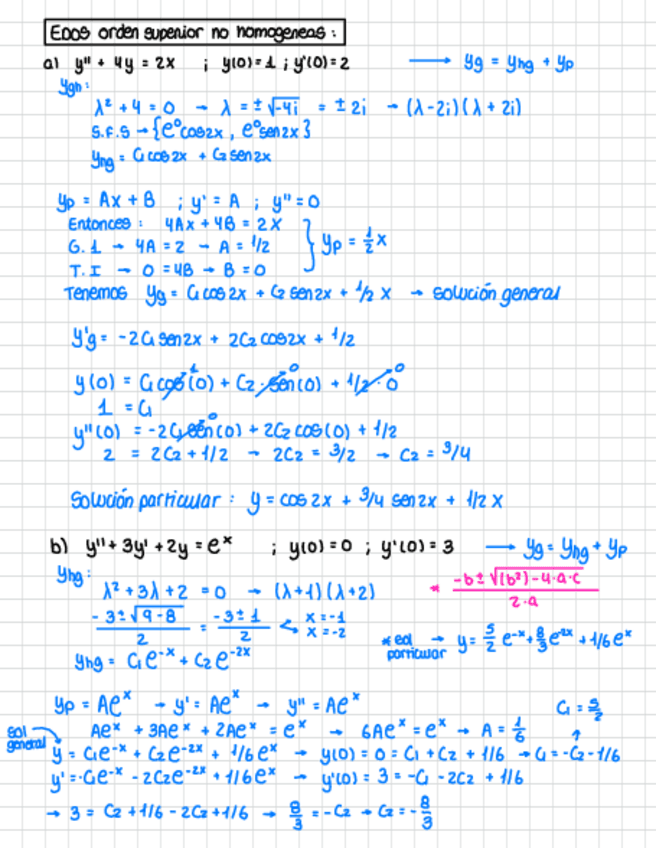 EDOS orden superior no homogeneas :
a) y'' + 4y = 2x ; y(0)=1 ; y'(0)=2 → yg = yhg + yp
ygh :
λ² + 4 = 0 → λ = ± √-4i = ± 2i → (λ-2i)(λ + 2i)
S.F.S → {e⁰cos2x , e⁰sen2x}
yhg = C₁ cos 2x + C₂ sen 2x
yp = Ax + B ; y' = A ; y'' = 0
Entonces : 4Ax + 4B = 2x
G. 1 → 4A = 2 → A = 1/2 } yp = 1/2 x
T. I → 0 = 4B → B = 0
Tenemos yg = C₁ cos 2x + C₂ sen 2x + 1/2 x → solución general
y'g = -2C₁ sen 2x + 2C₂ cos 2x + 1/2
y(0) = C₁ cos(0) 1 + C₂ · sen(0) 0 + 1/2 · 0 0
1 = C₁
y''(0) = -2C₁ sen(0) 0 + 2C₂ cos(0) + 1/2
2 = 2C₂ + 1/2 → 2C₂ = 3/2 → C₂ = 3/4
Solución particular : y = cos 2x + 3/4 sen 2x + 1/2 x
b) y'' + 3y' + 2y = eˣ ; y(0) = 0 ; y'(0) = 3 → yg = yhg + yp
yhg :
λ² + 3λ + 2 = 0 → (λ+1)(λ+2) * -b ± √(b²) - 4·a·c / 2·a
-3 ± √9-8 / 2 = -3 ± 1 / 2 < x = -1 x = -2
* sol particular → y = 5/2 e⁻ˣ + 8/3 e⁻²ˣ + 1/6 eˣ
yhg = C₁e⁻ˣ + C₂e⁻²ˣ
yp = Aeˣ → y' = Aeˣ → y'' = Aeˣ C₁ = 5/2
Aeˣ + 3Aeˣ + 2Aeˣ = eˣ → 6Aeˣ = eˣ → A = 1/6 ↑
sol general y = C₁e⁻ˣ + C₂e⁻²ˣ + 1/6 eˣ → y(0) = 0 = C₁ + C₂ + 1/6 → C₁ = -C₂ - 1/6
y' = -C₁e⁻ˣ - 2C₂e⁻²ˣ + 1/6 eˣ → y'(0) = 3 = -C₁ - 2C₂ + 1/6
→ 3 = C₂ + 1/6 - 2C₂ + 1/6 → 8/3 = -C₂ → C₂ = -8/3